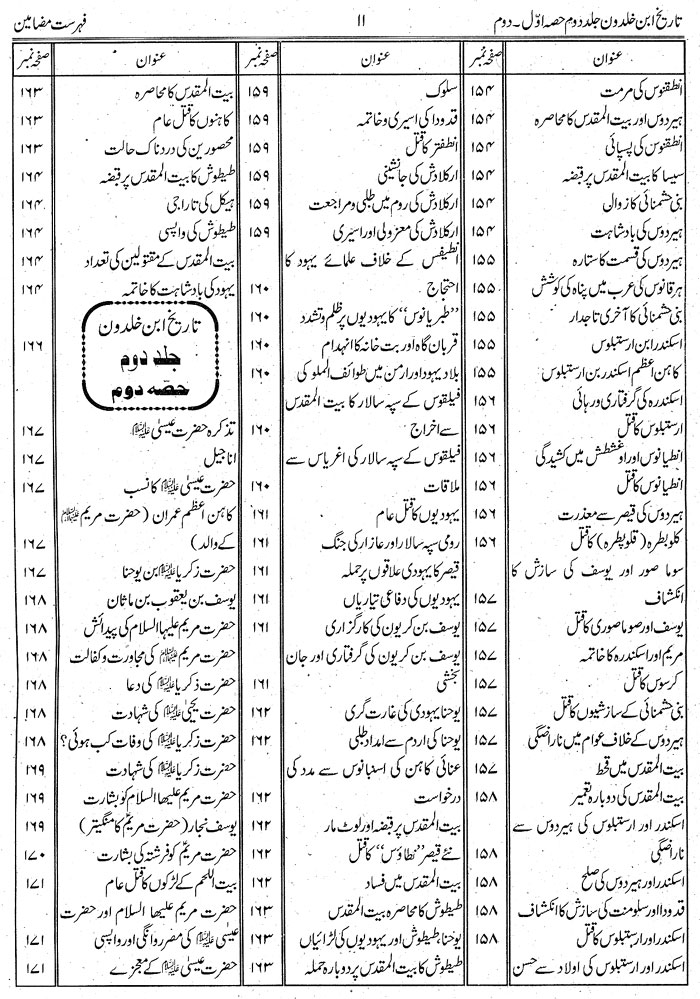 تاریخ ابن خلدون جلد دوم حصہ اوّل۔ دوم
۱۱
فہرست مضامین
عنوان
صفحہ نمبر
انطقنوس کی مرمت ۱۵۴
ہیردوس اور بیت المقدس کا محاصرہ ۱۵۴
انطقنوس کی پسپائی ۱۵۴
سیسا کا بیت المقدس پر قبضہ ۱۵۴
بنی حشمنائی کا زوال ۱۵۴
ہیردوس کی بادشاہت ۱۵۴
ہیردوس کی قسمت کا ستارہ ۱۵۵
ہرقانوس کی عرب میں پناہ کی کوشش ۱۵۵
بنی حشمنائی کا آخری تاجدار ۱۵۵
اسکندر ابن ارستبلوس ۱۵۵
کاہن اعظم اسکندر بن ارستبلوس ۱۵۵
اسکندرہ کی گرفتاری و رہائی ۱۵۶
ارستبلوس کا قتل ۱۵۶
انطیانوس اور اوغشطش میں کشیدگی ۱۵۶
انطیانوس کا قتل ۱۵۶
ہیردوس کی قیصر سے معذرت ۱۵۶
کلوبطرہ (قلوپطرہ) کا قتل ۱۵۶
سوما صور اور یوسف کی سازش کا
انکشاف ۱۵۷
یوسف اور صوما صوری کا قتل ۱۵۷
مریم اور اسکندرہ کا خاتمہ ۱۵۷
کرسوس کا قتل ۱۵۷
بنی حشمنائی کے سازشیوں کا قتل ۱۵۷
ہیردوس کے خلاف عوام میں ناراضگی ۱۵۷
بیت المقدس میں قحط ۱۵۷
بیت المقدس کی دوبارہ تعمیر ۱۵۸
اسکندر اور ارستبلوس کی ہیردوس سے
ناراضگی ۱۵۸
اسکندر اور ہیردوس کی صلح ۱۵۸
قدودا اور سلومنت کی سازش کا انکشاف ۱۵۸
اسکندر اور ارستبلوس کا قتل ۱۵۸
اسکندر اور ارستبلوس کی اولاد سے حسن
عنوان
صفحہ نمبر
سلوک ۱۵۹
قدودا کی اسیری و خاتمہ ۱۵۹
انطفتر کا قتل ۱۵۹
ارکلاوش کی جانشینی ۱۵۹
ارکلاوش کی روم میں طلبی و مراجعت ۱۵۹
ارکلاوش کی معزولی اور اسیری ۱۵۹
انطیفس کے خلاف علمائے یہود کا
احتجاج ۱۶۰
”طبریانوس“ کا یہودیوں پر ظلم و تشدد ۱۶۰
قربان گاہ اور بت خانہ کا انہدام ۱۶۰
بلاد یہود اور ارمن میں طوائف الملوکی ۱۶۰
فیلقوس کے سپہ سالار کا بیت المقدس
سے اخراج ۱۶۰
فیلقوس کے سپہ سالار کی اغرباس سے
ملاقات ۱۶۰
یہودیوں کا قتل عام ۱۶۱
رومی سپہ سالار اور عازار کی جنگ ۱۶۱
قیصر کا یہودی علاقوں پر حملہ ۱۶۱
یہودیوں کی دفاعی تیاریاں ۱۶۱
یوسف بن کریون کی کارگزاری ۱۶۱
یوسف بن کریون کی گرفتاری اور جان
بخشی ۱۶۱
یوحنا یہودی کی غارت گری ۱۶۲
یوحنا کی اردم سے امداد طلبی ۱۶۲
عنائی کاہن کی اسنبانوس سے مدد کی
درخواست ۱۶۲
بیت المقدس پر قبضہ اور لوٹ مار ۱۶۲
نئے قیصر ”نطاؤس“ کا قتل ۱۶۲
بیت المقدس میں فساد ۱۶۲
طیطوش کا محاصرہ بیت المقدس ۱۶۳
یوحنا، طیطوش اور یہودیوں کی لڑائیاں ۱۶۳
طیطوش کا بیت المقدس پر دوبارہ حملہ ۱۶۳
عنوان
صفحہ نمبر
بیت المقدس کا محاصرہ ۱۶۳
کاہنوں کا قتل عام ۱۶۳
محصورین کی دردناک حالت ۱۶۳
طیطوش کا بیت المقدس پر قبضہ ۱۶۴
ہیکل کی تاراجی ۱۶۴
طیطوش کی واپسی ۱۶۴
بیت المقدس کے مقتولین کی تعداد ۱۶۴
یہود کی بادشاہت کا خاتمہ ۱۶۴
تاریخ ابن خلدون
جلد دوم ۱۶۶
حصّہ دوم
تذکرہ حضرت عیسیٰ علیہ السلام ۱۶۷
اناجیل ۱۶۷
حضرت عیسیٰ علیہ السلام کا نسب ۱۶۷
کاہن اعظم عمران (حضرت مریم علیہا السلام
کے والد) ۱۶۷
حضرت زکریا علیہ السلام ابن یوحنا ۱۶۷
یوسف بن یعقوب بن ماثان ۱۶۸
حضرت مریم علیہا السلام کی پیدائش ۱۶۸
حضرت مریم علیہا السلام کی مجاورت و کفالت ۱۶۸
حضرت زکریا علیہ السلام کی دعا ۱۶۸
حضرت یحییٰ علیہ السلام کی شہادت ۱۶۸
حضرت زکریا علیہ السلام کی وفات کب ہوئی؟ ۱۶۸
حضرت زکریا علیہ السلام کی شہادت ۱۶۹
حضرت مریم علیہا السلام کو بشارت ۱۶۹
یوسف نجار (حضرت مریمؑ کا منگیتر) ۱۶۹
حضرت مریمؑ کو فرشتہ کی بشارت ۱۷۰
بیت اللحم کے لڑکوں کا قتل عام ۱۷۱
حضرت مریم علیہا السلام اور حضرت
عیسیٰ علیہ السلام کی مصر روانگی اور واپسی ۱۷۱
حضرت عیسیٰ علیہ السلام کے معجزے ۱۷۱